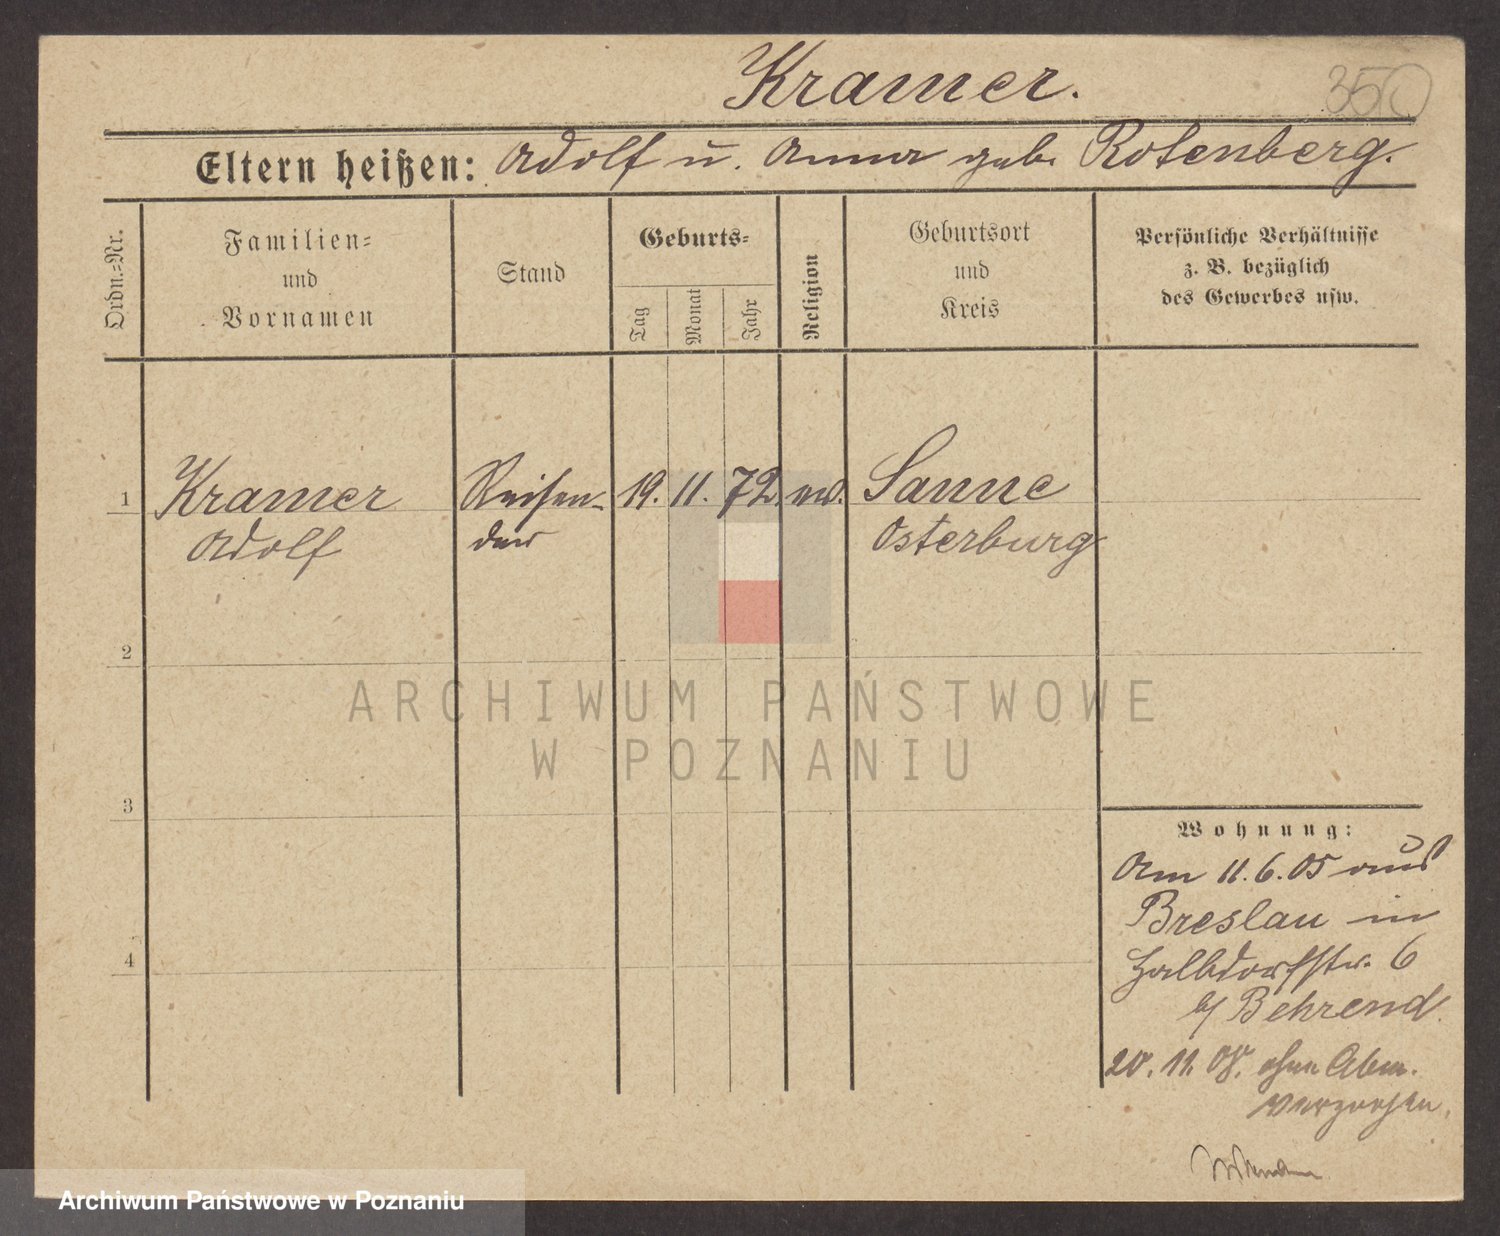 Kramer.
350
Eltern heißen: Adolf u. Anna geb. Rotenberg.
Ordn.=Nr.
Familien=
und
Vornamen
Stand
Geburts=
Tag
Monat
Jahr
Religion
Geburtsort
und
Kreis
Persönliche Verhältnisse
z. B. bezüglich
des Gewerbes usw.
1 Kramer Reisen- 19. 11. 72. ev. Sanne
Adolf der Osterburg
2
3
4
ARCHIWUM PAŃSTWOWE
W POZNANIU
Wohnung:
Am 11.6.05 aus
Breslau in
Halbdorfstr. 6
b/ Behrend.
20. 11. 08. ohne Abm.
verzogen.
Archiwum Państwowe w Poznaniu